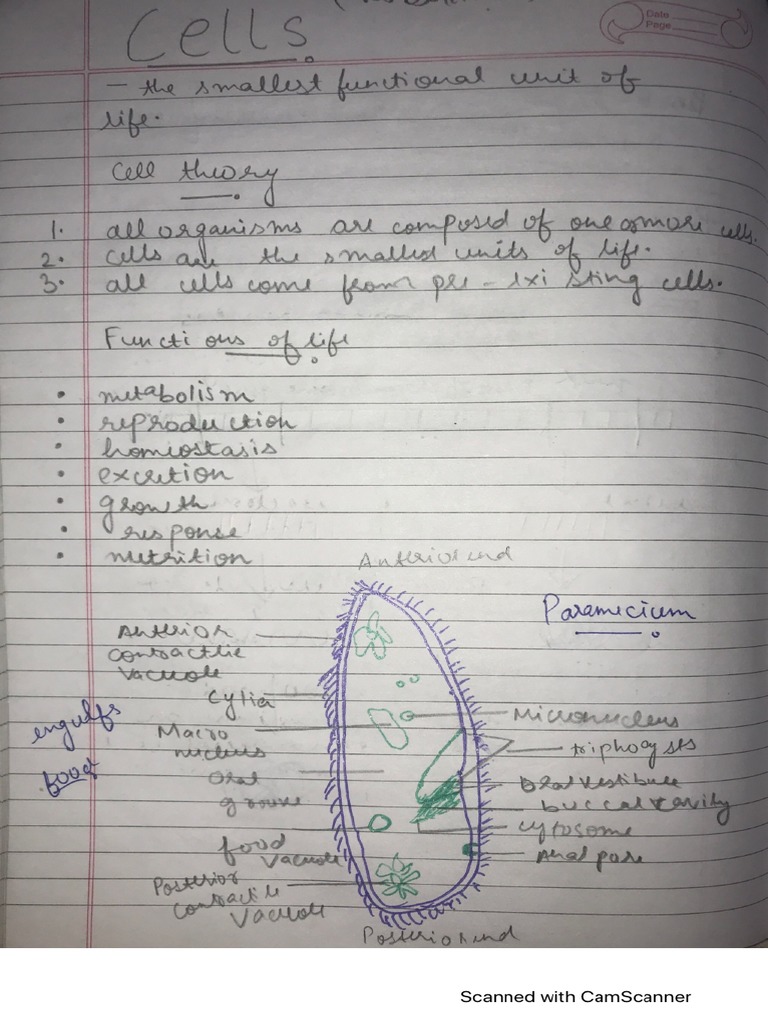 Date
Page
Cells.
- the smallest functional unit of
life.
Cell theory
1. all organisms are composed of one or more cells.
2. cells are the smallest units of life.
3. all cells come from pre-existing cells.
Functions of life
• metabolism
• reproduction
• homeostasis
• excretion
• growth
• response
• nutrition
Anterior end
Paramecium
Anterior
contractile
vacuole
Cylia
engulfs
food
Macro
nucleus
Micronucleus
triphocysts
Oral
groove
Oral vestibule
buccal cavity
cytosome
food
vacuole
Anal pore
Posterior
contractile
vacuole
Posterior end
Scanned with CamScanner